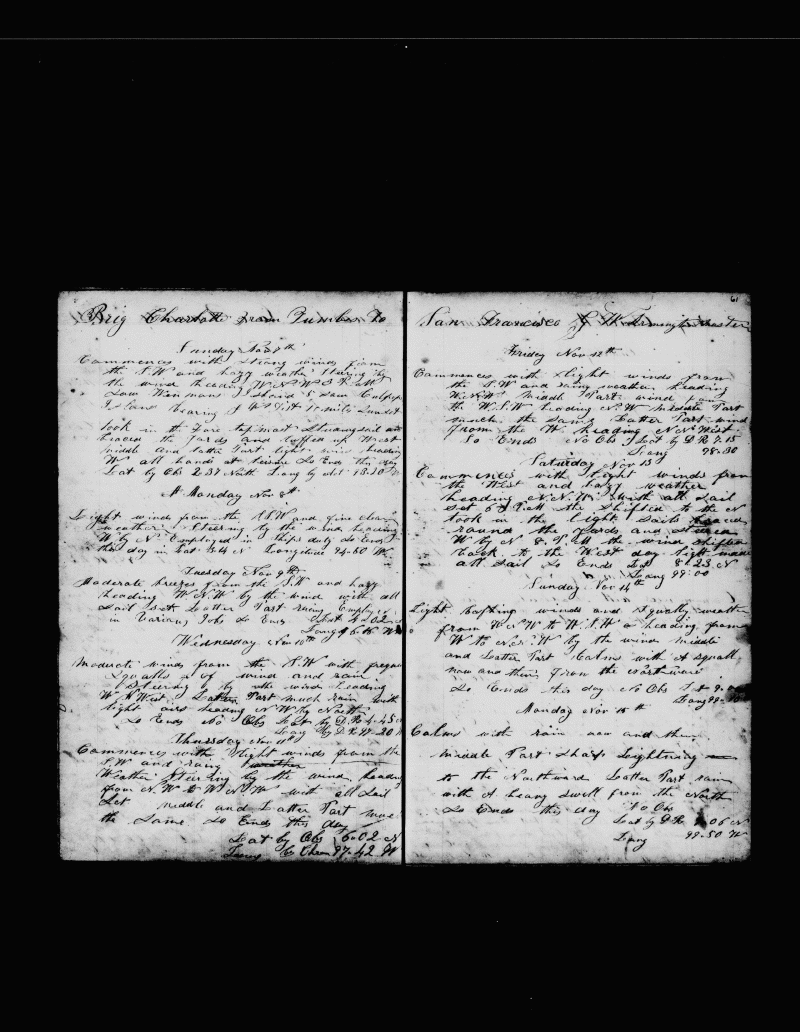 Brig Charlotte from Tumbes To
Sunday Nov 7th
Commences with strong winds from
the S.W and hazy weather steering by
the wind heading W N W 5 P.M
Saw Wenmans Island & Saw Culpepper
Island bearing miles Sunset
took in the Fore topmast Stunsail and
braced the Yards and luffed up West
middle and latter Part light wind heading
W all hands at leisure So Ends this day
Lat by Obs 2.37 North Long by
Monday Nov 8th
Light winds from the S.W and fine clear
weather Steering by the wind heading
W by N Employed in Ships duty So Ends
this day in Lat N Longitude W
Tuesday Nov 9th
Moderate breezes from the S.W and hazy
heading W N W by the wind with all
Sail Set Latter Part rainy Employed
in Various Jobs So Ends Lat 4.02
Long W
Wednesday Nov 10th
Moderate winds from the S.W with frequent
Squalls of wind and rain
Steering by the wind heading
W N West Latter Part much rain with
light airs heading N W by North
So Ends No Obs Lat by D.R 4.45 N
Long by D.R 97.20 W
Thursday Nov 11th
Commences with light winds from the
S.W and rainy weather
Weather Steering by the wind heading
from N.W to W N W with all Sail
Set middle and Latter Part much
the Same So Ends this day
Lat by Obs 6.02 N
Long by Chron 97.42 W
61
San Francisco Master
Friday Nov 12th
Commences with slight winds from
the S.W and rainy weather heading
W.N.W Middle Part wind from
the W.S.W heading N.W Middle Part
much the same Latter Part wind
from the W heading N N West
So Ends No Obs Lat by D R 7.15
Long 98.30
Saturday Nov 13th
Commences with slight winds from
the West and hazy weather
heading N.N.W. with all Sail
Set 6 P.M the Shifted to the N
took in the light Sails braced
round the Yards and steered
W by N 8 P.M the wind Shifted
back to the West day light made
all Sail So Ends Lat 8.23 N
Long 99.00
Sunday Nov 14th
Light baffling winds and Squally weather
from W N W to W.S.W heading from
W to N.N.W by the wind middle
and Latter Part Calms with A Squall
now and then from the Northward
So Ends this day No Obs Lat 9.
Long 99.
Monday Nov 15th
Calms with rain now and then
Middle Part Sharp Lightning
to the Northward Latter Part rain
with A heavy Swell from the North
So Ends this day No Obs
Lat by D.R 9.06 N
Long 99.50 W